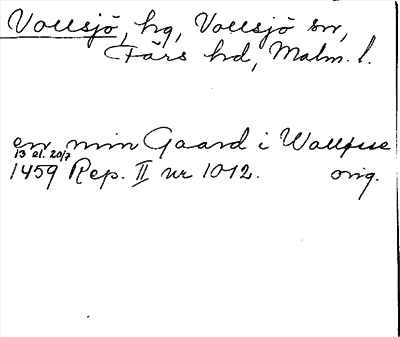 Vollsjö, hg, Vollsjö sn,
Färs hd, Malm. l.
en min Gaard i Walløsse
13 el. 20/7
1459 Rep. II nr 1012. orig.